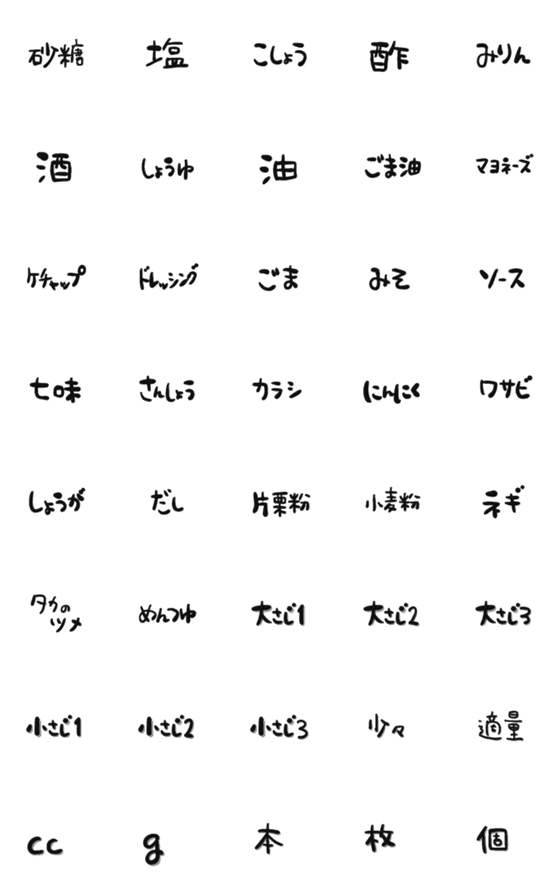 砂糖 塩 こしょう 酢 みりん
酒 しょうゆ 油 ごま油 マヨネーズ
ケチャップ ドレッシング ごま みそ ソース
七味 さんしょう カラシ にんにく ワサビ
しょうが だし 片栗粉 小麦粉 ネギ
タカの
ツメ めんつゆ 大さじ1 大さじ2 大さじ3
小さじ1 小さじ2 小さじ3 少々 適量
cc g 本 枚 個